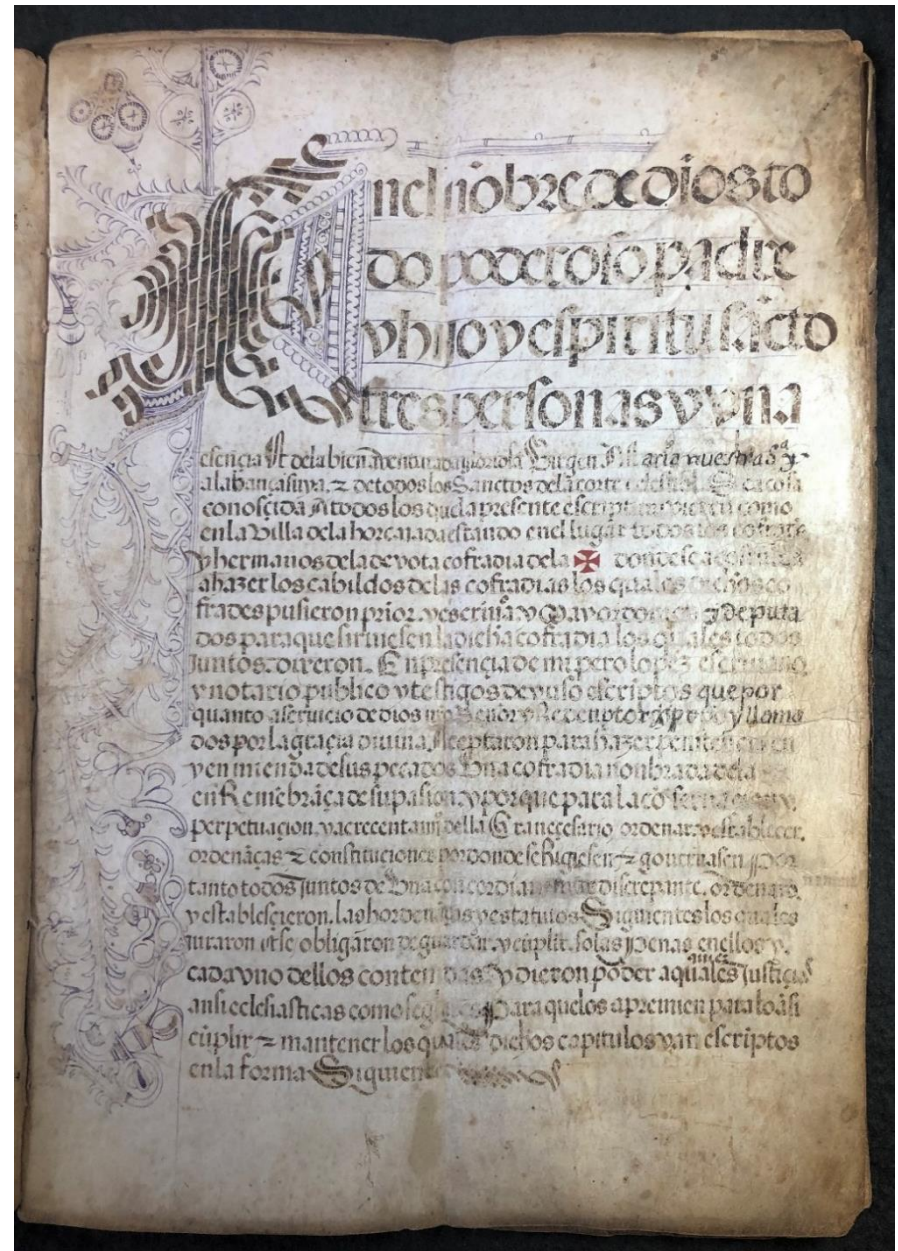 En el nõbre de dios to
do poderoso padre
y hijo y espiritu sãcto
tres personas y vna
esencia A de la bien auenturada gloriosa Virgen Maria nuestra Sª y
alabança suya. z de todos los Sanctos de la corte celestial. Sea cosa
conosçida A todos los que la presente escriptura vieren como
en la Villa de la horcajada estando en el lugar todos los cofrades
y hermanos de la deuota cofradia de la ✠ donde se acostunbra
a hazer los cabildos de las cofradias los quales dichos co
frades pusieron prior. y escriuã y Mayordomos y deputa
dos para que siruiesen la dicha cofradia los quales todos
Juntos. dixeron. En presençia de mi pero lopez escriuano
y notario publico y testigos de yuso escriptos que por
quanto a seruicio de dios nrõ Señor y Redemptor xpõ y llama
dos por la graçia diuina Aceptaron para hazer penitençia en
y enmienda de sus pecados Vna cofradia nonbrada de la
en Remẽbrãça de su pasion. y porque para la cõseruaçion y.
perpetuaçion. y acrecentamjº della Era neçesario ordenar. y establecer.
ordenãças z constituciones por donde se Rigiesen. z gouernasen Por
tanto todos Juntos de Vna concordia discrepante. ordenarõ
y establesçieron. las hordenãças y estatutos Siguientes los quales
juraron et se obligaron de guardar. y cũplir. so las penas en ellos y.
cada vno dellos contenidas. y dieron poder a qualesquier Justiçias
ansi eclesiasticas como seglares Para que los apremien para lo ãsi
cũplir z mantener los quales dichos capitulos van escriptos
en la forma Siguiente